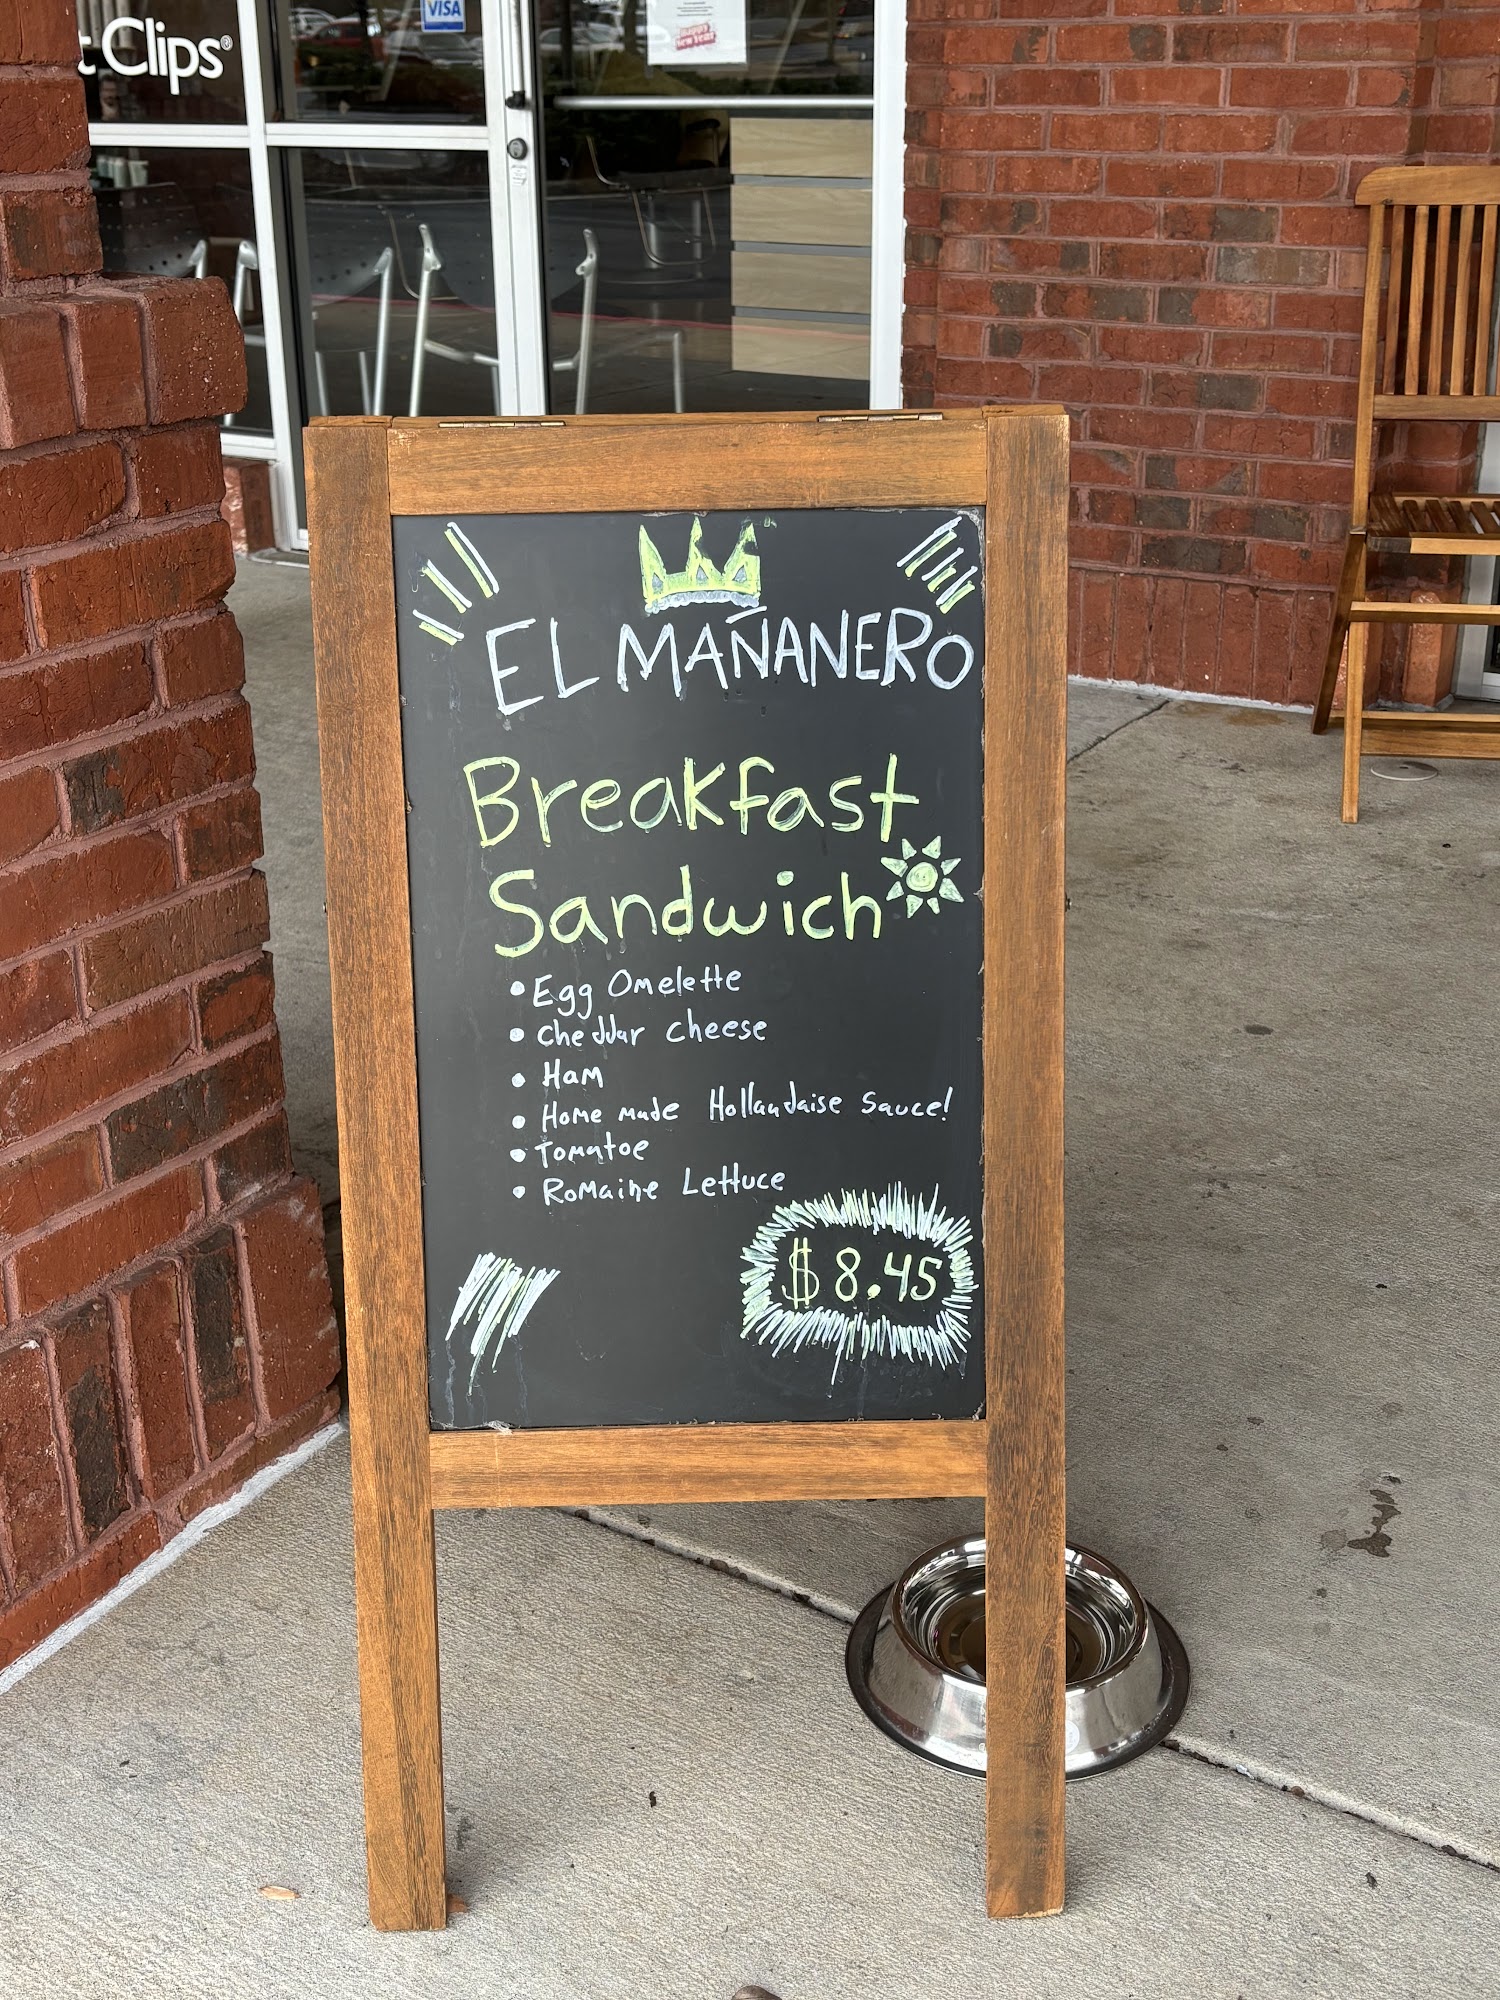 Clips®
VISA
HAPPY
NEW YEAR
EL MAÑANERO
Breakfast
Sandwich
• Egg Omelette
• Cheddar cheese
• Ham
• Home made Hollandaise sauce!
• Tomatoe
• Romaine Lettuce
$8.45